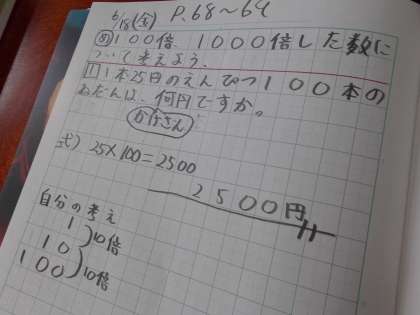 6/18(金) P.68～69
め 100倍、1000倍した数に
ついて考えよう。
1 1本25円のえんぴつ100本の
ねだんは、何円ですか。
かけざん
式) 25×100=2500
2500円
自分の考え
1
10倍
10
10倍
100